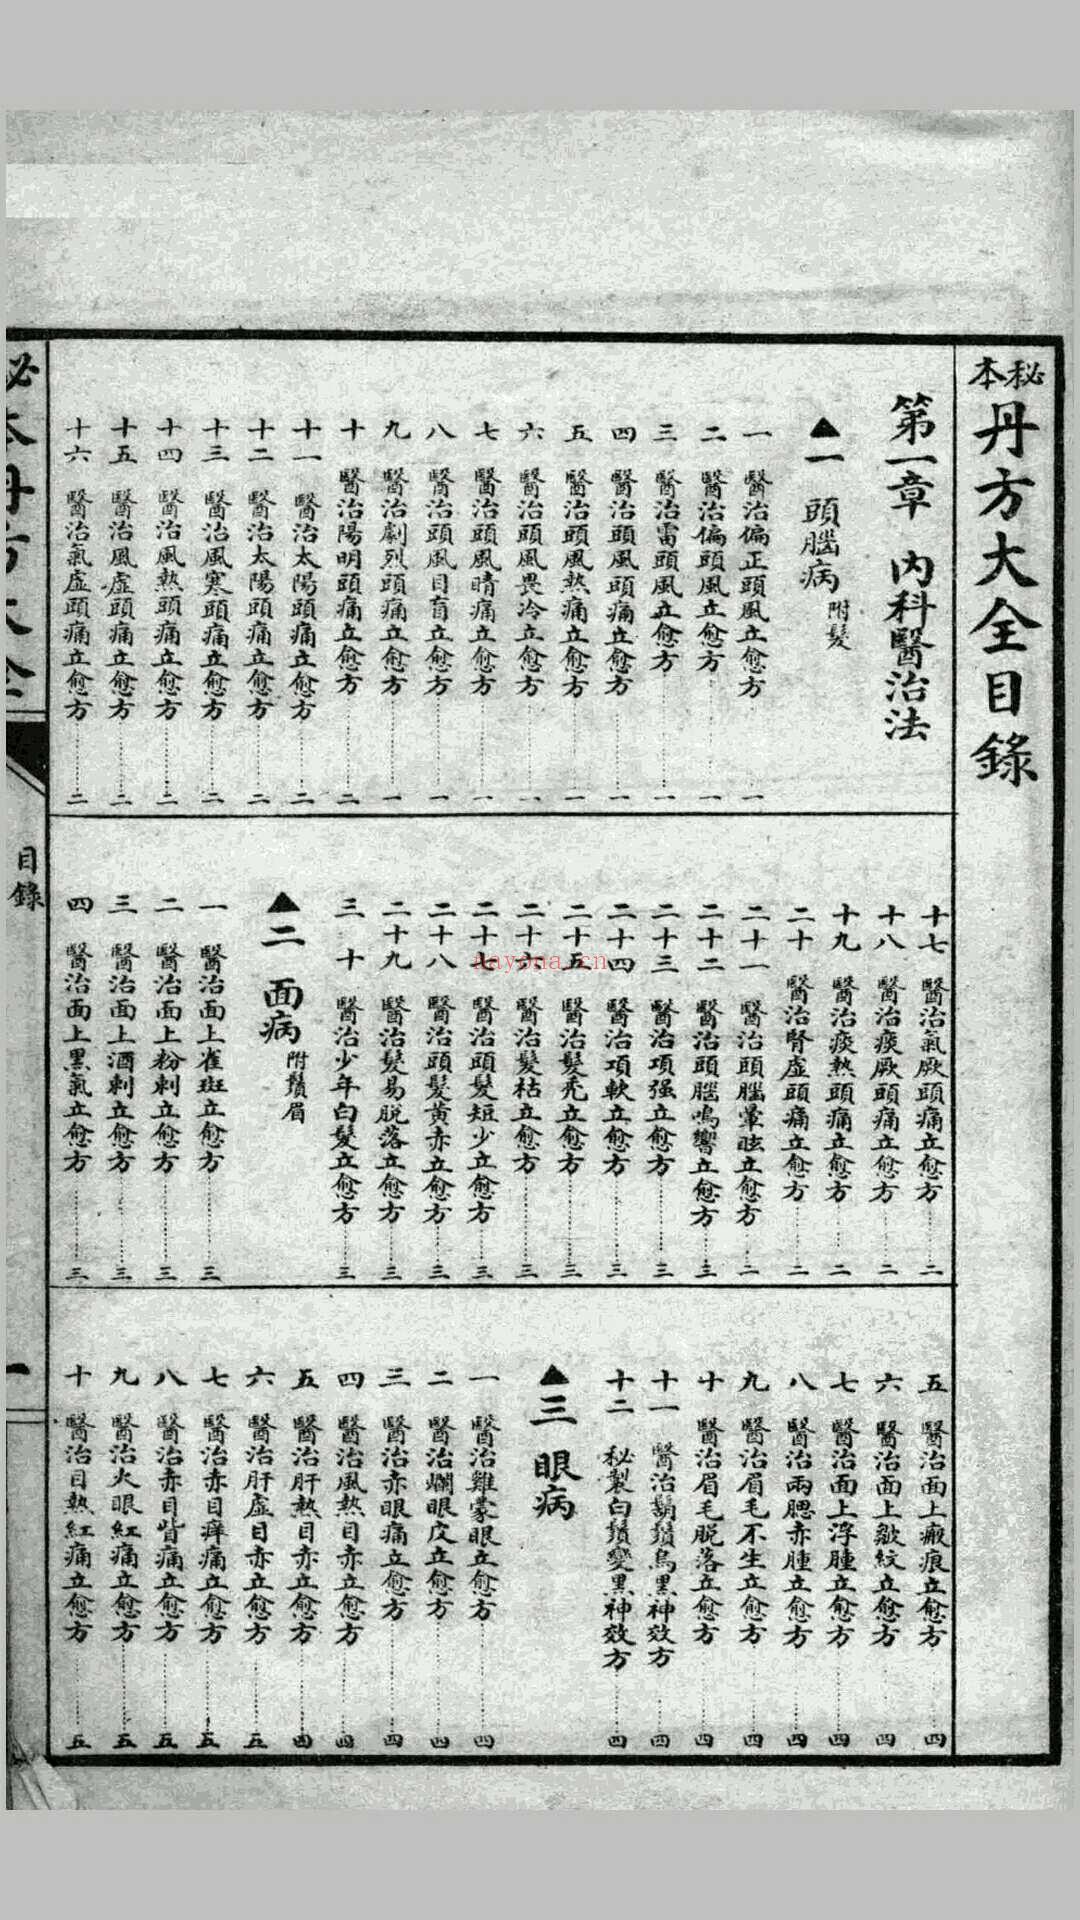 秘本丹方大全目錄
第一章 內科醫治法
▲一 頭腦病 附髮
一 醫治偏正頭風立愈方 一
二 醫治偏頭風立愈方 一
三 醫治雷頭風立愈方 一
四 醫治頭風頭痛立愈方 一
五 醫治頭風熱痛立愈方 一
六 醫治頭風畏冷立愈方 一
七 醫治頭風睛痛立愈方 一
八 醫治頭風目盲立愈方 一
九 醫治劇烈頭痛立愈方 一
十 醫治陽明頭痛立愈方 二
十一 醫治太陽頭痛立愈方 二
十二 醫治太陽頭痛立愈方 二
十三 醫治風寒頭痛立愈方 二
十四 醫治風熱頭痛立愈方 二
十五 醫治風虛頭痛立愈方 二
十六 醫治氣虛頭痛立愈方 二
十七 醫治氣厥頭痛立愈方 二
十八 醫治痰厥頭痛立愈方 二
十九 醫治痰熱頭痛立愈方 二
二十 醫治腎虛頭痛立愈方 二
二十一 醫治頭腦暈眩立愈方 二
二十二 醫治頭腦鳴響立愈方 三
二十三 醫治項强立愈方 三
二十四 醫治項軟立愈方 三
二十五 醫治髮禿立愈方 三
二十六 醫治髮枯立愈方 三
二十七 醫治頭髮短少立愈方 三
二十八 醫治頭髮黃赤立愈方 三
二十九 醫治髮易脫落立愈方 三
三十 醫治少年白髮立愈方 三
▲二 面病 附鬚眉
一 醫治面上雀斑立愈方 三
二 醫治面上粉刺立愈方 三
三 醫治面上酒刺立愈方 三
四 醫治面上黑氣立愈方 三
五 醫治面上瘢痕立愈方 四
六 醫治面上皺紋立愈方 四
七 醫治面上浮腫立愈方 四
八 醫治兩腮赤腫立愈方 四
九 醫治眉毛不生立愈方 四
十 醫治眉毛脫落立愈方 四
十一 醫治鬍鬚烏黑神效方 四
十二 秘製白鬚變黑神效方 四
▲三 眼病
一 醫治雞蒙眼立愈方 四
二 醫治爛眼皮立愈方 四
三 醫治赤眼痛立愈方 四
四 醫治風熱目赤立愈方 四
五 醫治肝熱目赤立愈方 四
六 醫治肝虛目赤立愈方 五
七 醫治赤目痒痛立愈方 五
八 醫治赤目眥痛立愈方 五
九 醫治火眼紅痛立愈方 五
十 醫治目熱紅痛立愈方 五
秘本丹方大全
目錄
一
nayona.cn